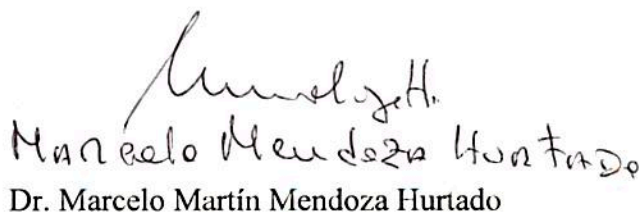 Marcelo Mendoza Hurtado
Dr. Marcelo Martín Mendoza Hurtado